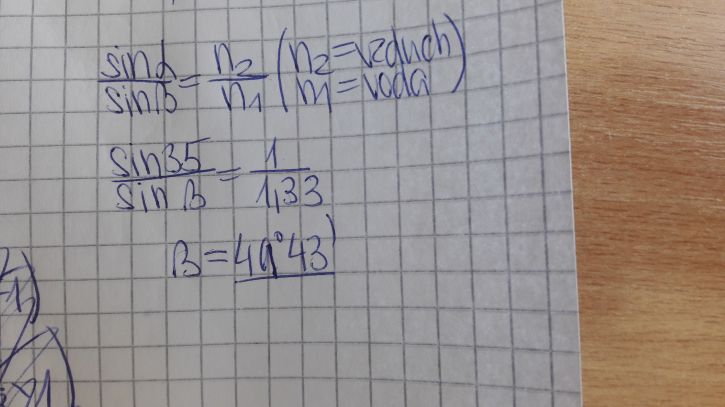 sinα/sinβ = n2/n1 (n2=vzduch
n1=voda)
sin35/sinβ = 1/1,33
β = 49°43'